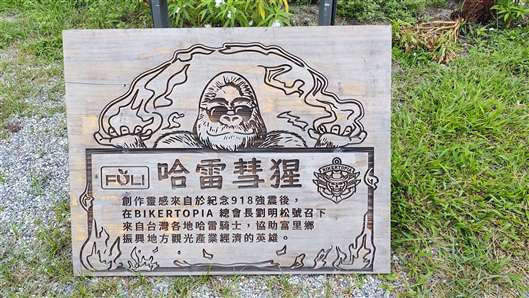 FULI
哈雷彗猩
創作靈感來自於紀念918強震後，
在BIKERTOPIA 總會長劉明松號召下
來自台灣各地哈雷騎士，協助富里鄉
振興地方觀光產業經濟的英雄。